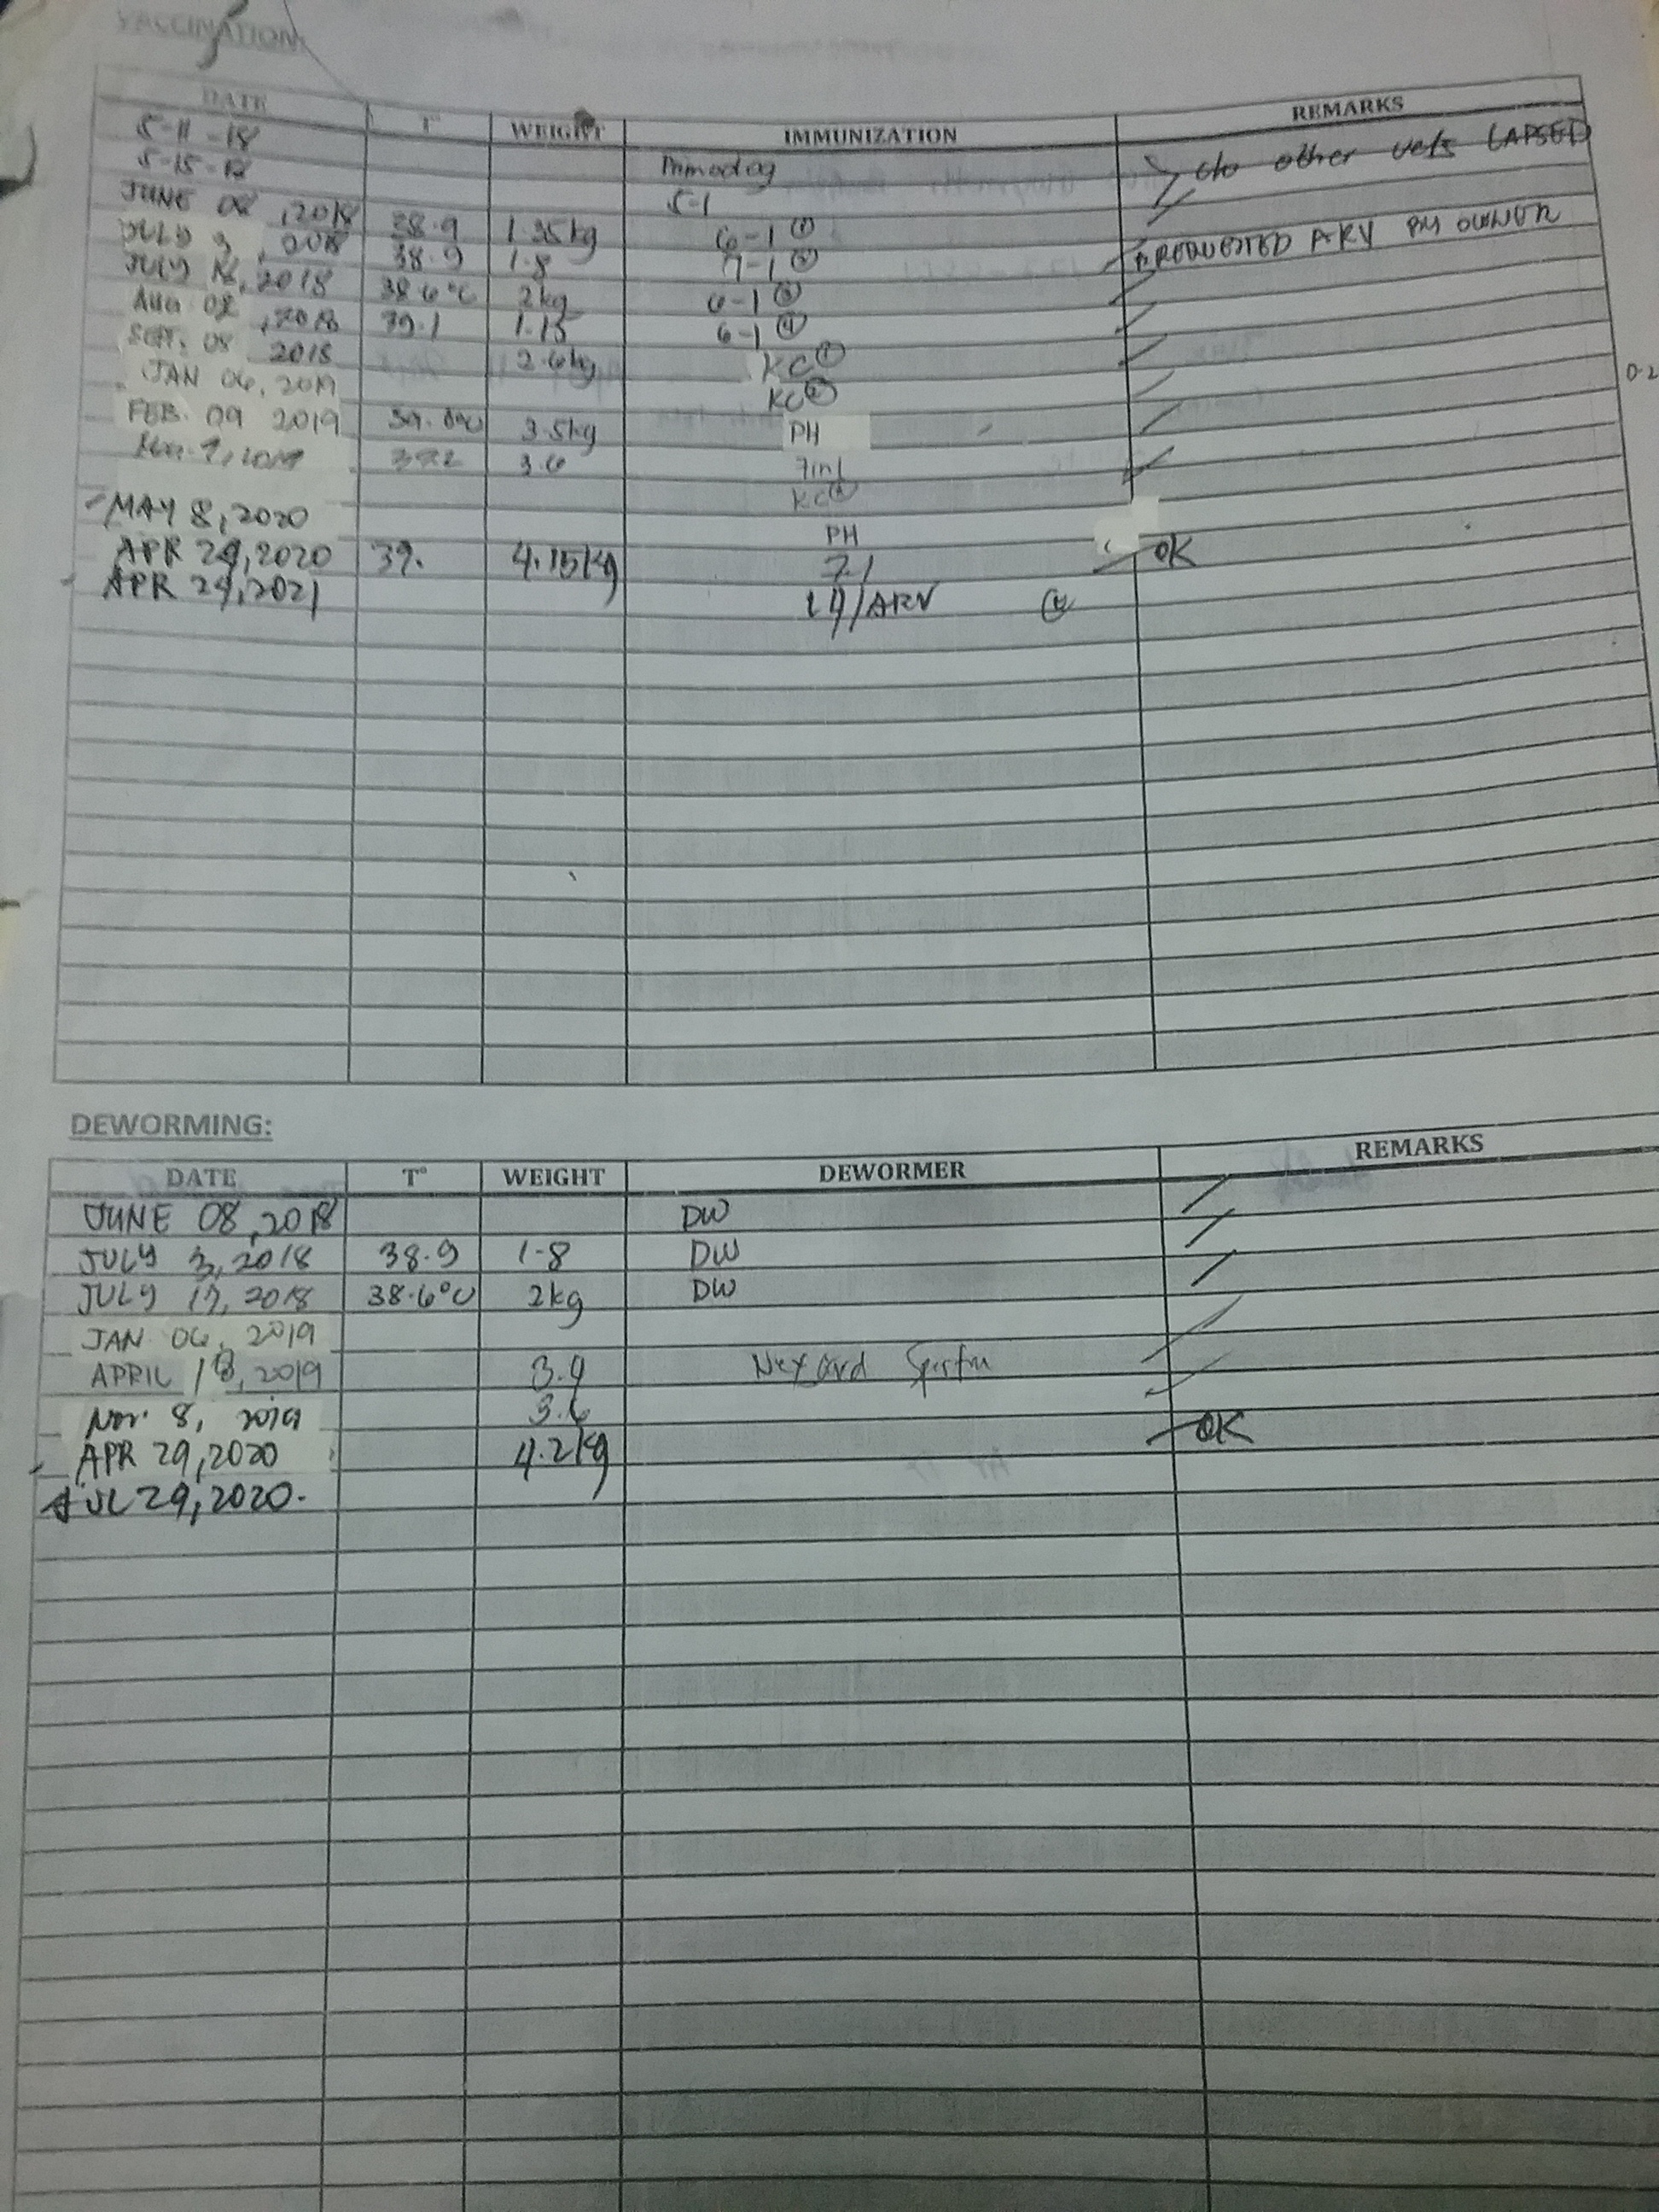 VACCINATION
DATE T° WEIGHT IMMUNIZATION REMARKS
5-11-18
5-15-18 c/o other vets LAPSED
JUNE 08, 2018 38.9 1.35kg 5-1
JULY 3, 2018 38.9 1.8 6-1 ① REQUESTED ARV BY OWNER
JULY 2018 38.6°C 2kg 7-1 ②
AUG 08, 2018 39.1 1.15 6-1 ③
SEPT. 08 2018 2.6kg 6-1 ④
JAN 06, 2019 KC ①
FEB. 09 2019 3.5kg KC ②
2019 3.6 PH
7in1
KC
MAY 8, 2020 PH
APR 29, 2020 39. 4.15kg OK
APR 29, 2021 /ARV
0.2
DEWORMING:
DATE T° WEIGHT DEWORMER REMARKS
JUNE 08, 2018 DW
JULY 3, 2018 38.9 1.8 DW
JULY 17, 2018 38.6°C 2kg DW
JAN 06, 2019
APRIL 18, 2019 3.9 Nexgard Spectra
Nov. 8, 2019 3.6
APR 29, 2020 4.2kg OK
JUL 29, 2020.